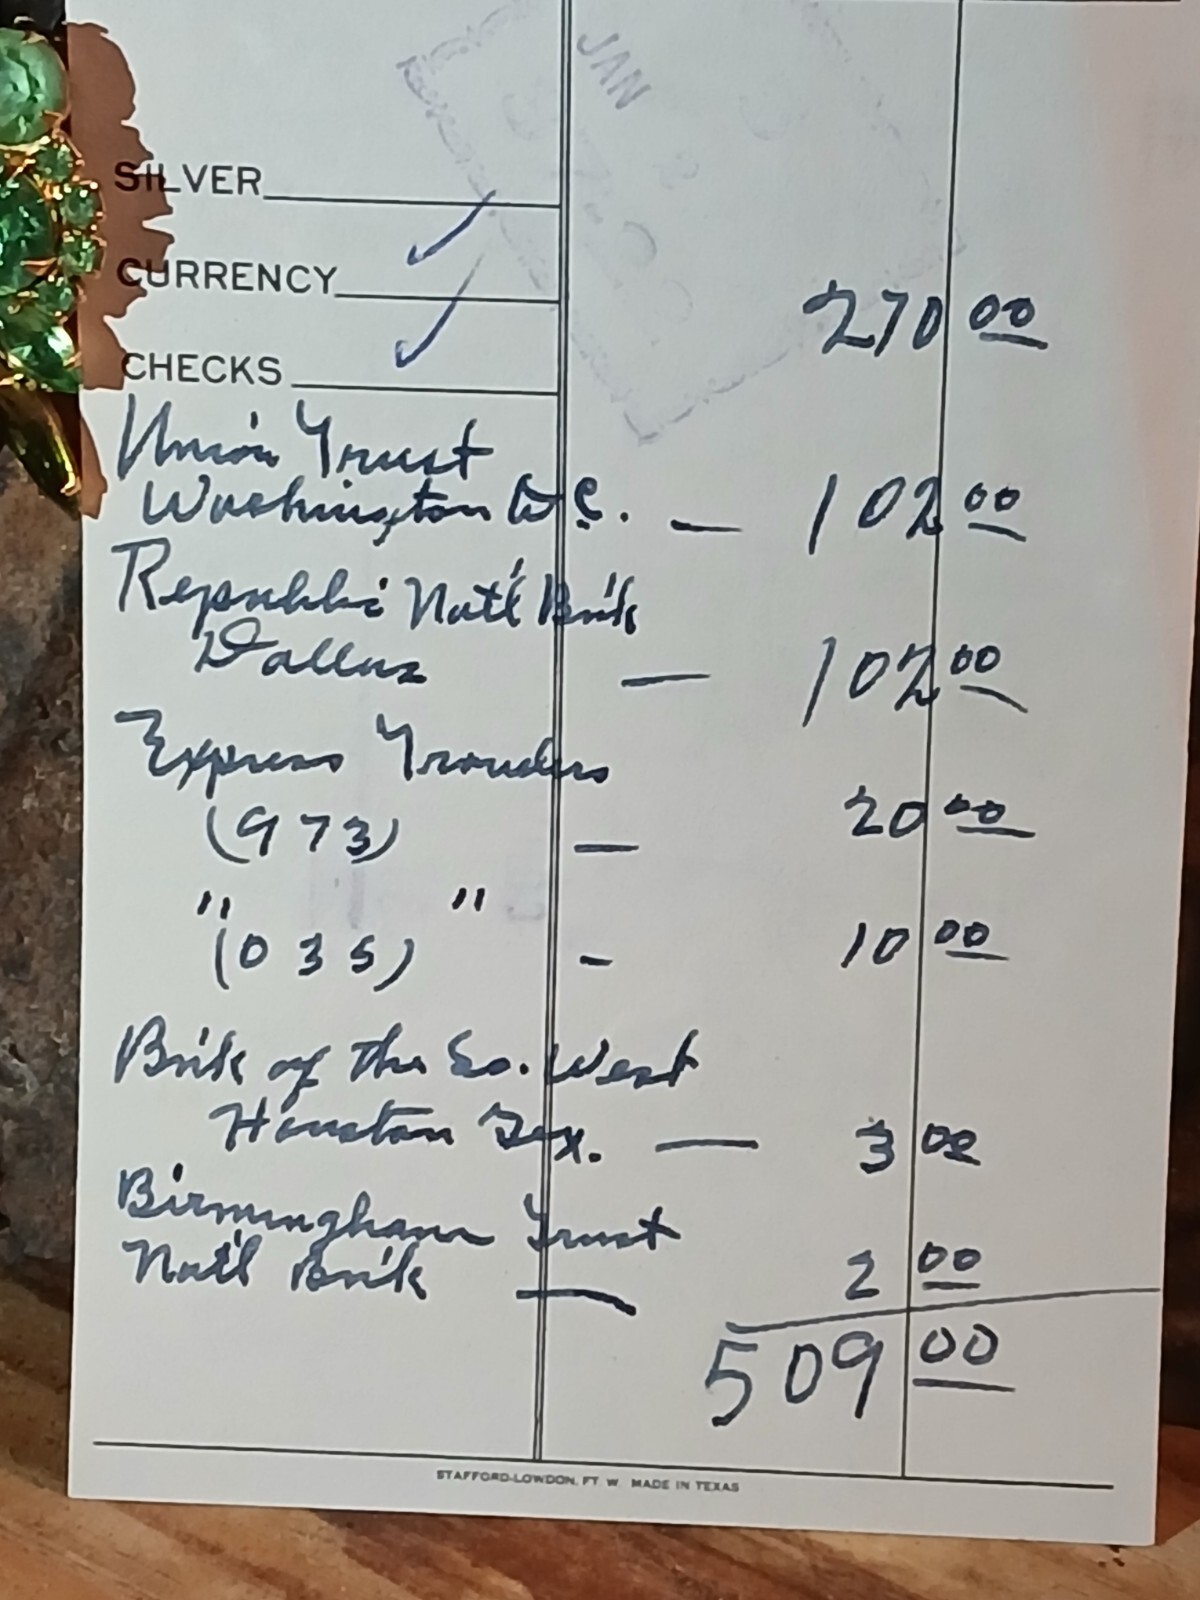 JAN
SILVER
CURRENCY
270 00
CHECKS
Union Trust
Washington D.C. — 102 00
Republic Nat'l Bn'k
Dallas — 102 00
Express
(973) — 20 00
" "
(035) - 10 00
Bn'k of the So. West
Houston Tex. — 3 00
Birmingham Trust
Nat'l Bn'k — 2 00
509 00
STAFFORD-LOWDON, FT. W. MADE IN TEXAS